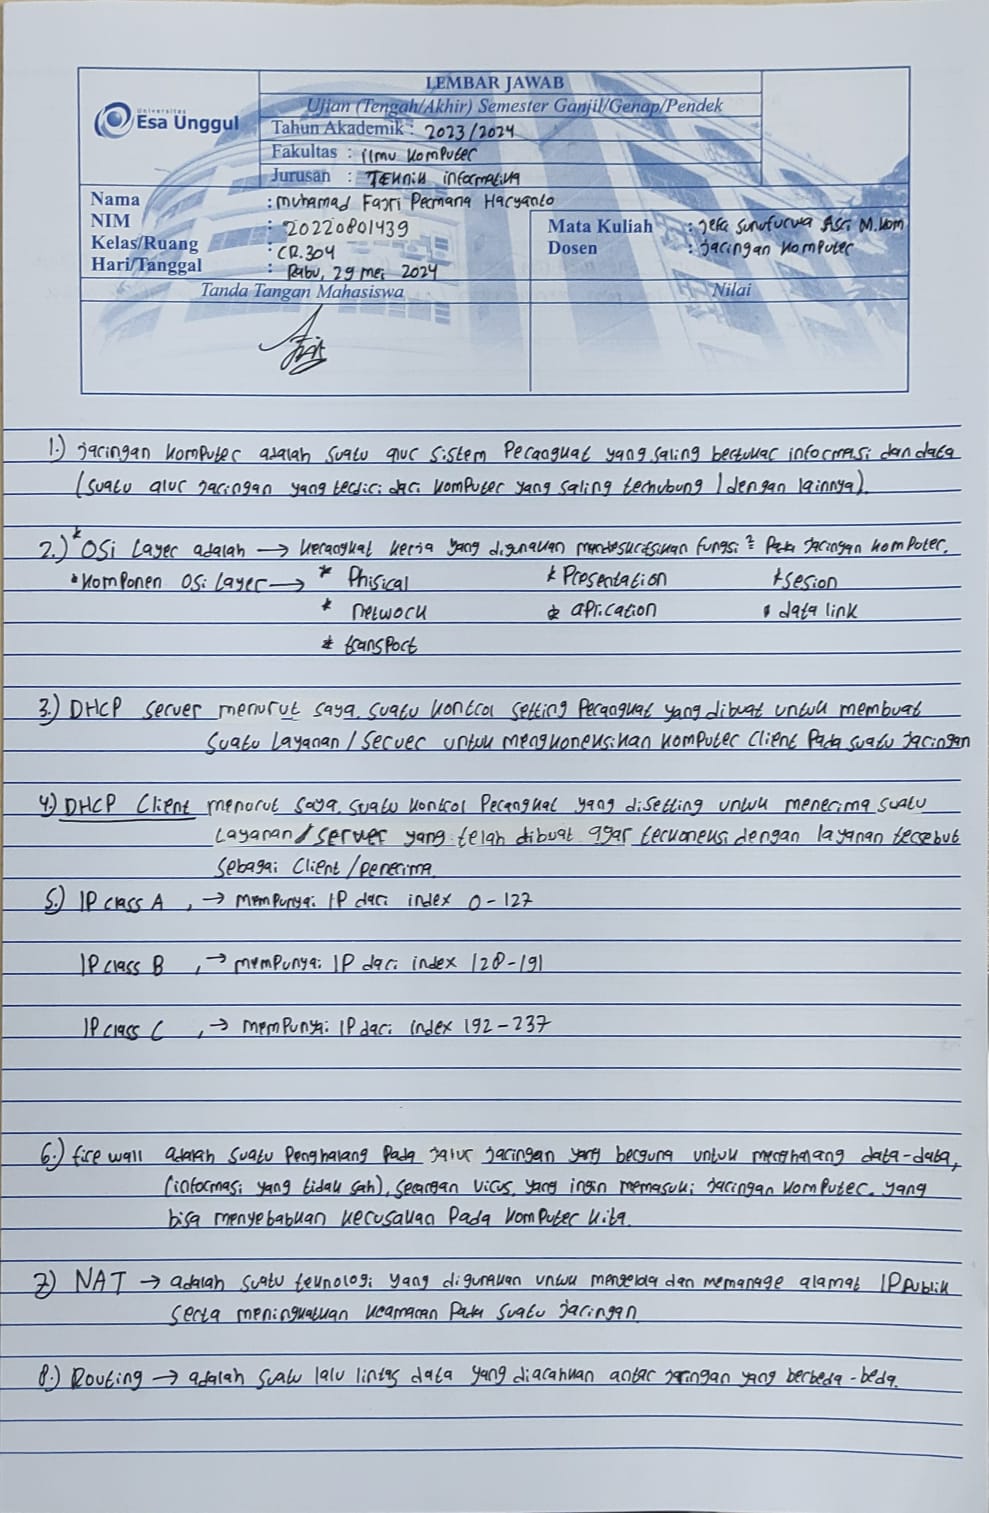 LEMBAR JAWAB
Ujian (Tengah/Akhir) Semester Ganjil/Genap/Pendek
Universitas
Esa Unggul
Tahun Akademik : 2023/2024
Fakultas : ilmu komputer
Jurusan : Teknik informatika
Nama : muhamad Fajri Permana Haryanto
NIM : 20220801439
Kelas/Ruang : CR.304
Hari/Tanggal : Rabu, 29 mei 2024
Mata Kuliah : Jefa M.kom
Dosen : jaringan komputer
Tanda Tangan Mahasiswa
Nilai
1.) jaringan komputer adalah suatu alur sistem Perangkat yang saling bertukar informasi dan data
(suatu alur jaringan yang terdiri dari komputer yang saling terhubung 1 dengan lainnya).
2.) * OSi Layer adalah → kerangkat kerja yang digunakan fungsi² Pada jaringan komputer.
* komponen OSi Layer → * Phisical * Presentation * sesion
* network * aplication * data link
* transport
3.) DHCP server menurut saya, suatu kontrol setting Perangkat yang dibuat untuk membuat
suatu Layanan / server untuk mengkoneksikan komputer client Pada suatu jaringan
4.) DHCP Client menurut saya, suatu kontrol Perangkat yang disetting untuk menerima suatu
Layanan / server yang telah dibuat agar terkoneksi dengan layanan tersebut
sebagai client / penerima.
5.) IP class A , → mempunyai IP dari index 0 - 127
IP class B , → mempunyai IP dari index 128 - 191
IP class C , → mempunyai IP dari index 192 - 237
6.) fire wall adalah suatu Penghalang Pada jalur jaringan yang berguna untuk menghalang data-data,
(informasi yang tidak sah), serangan virus, yang ingin memasuki jaringan komputer. yang
bisa menyebabkan kerusakan Pada komputer kita.
7.) NAT → adalah suatu teknologi yang digunakan untuk mengelola dan memanage alamat IP Publik
serta meningkatkan keamanan Pada suatu jaringan
8.) Routing → adalah suatu lalu lintas data yang diarahkan antar jaringan yang berbeda-beda.